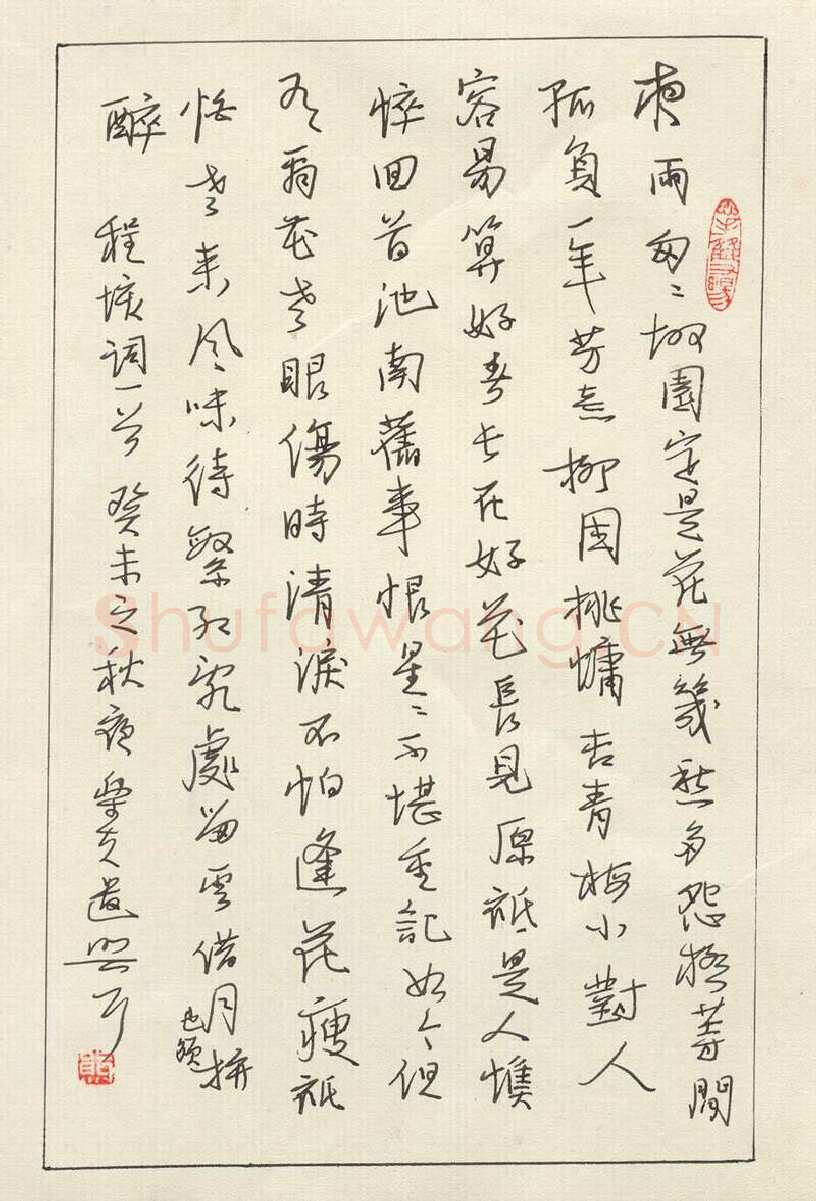 夜雨匆〻故園定是花無幾愁多怨極等閒
孤負一年芳意柳困桃慵杏青梅小對人
容易算好春長在好花長見原祇是人憔
悴回首池南舊事恨星〻不堪重記如今但
有看花老眼傷時清淚不怕逢花瘦祇
怕老來風味待繁紅亂處留雲借月也須拚
醉 程垓詞一首 癸未之秋夜遣興耳
Shufawang.CN